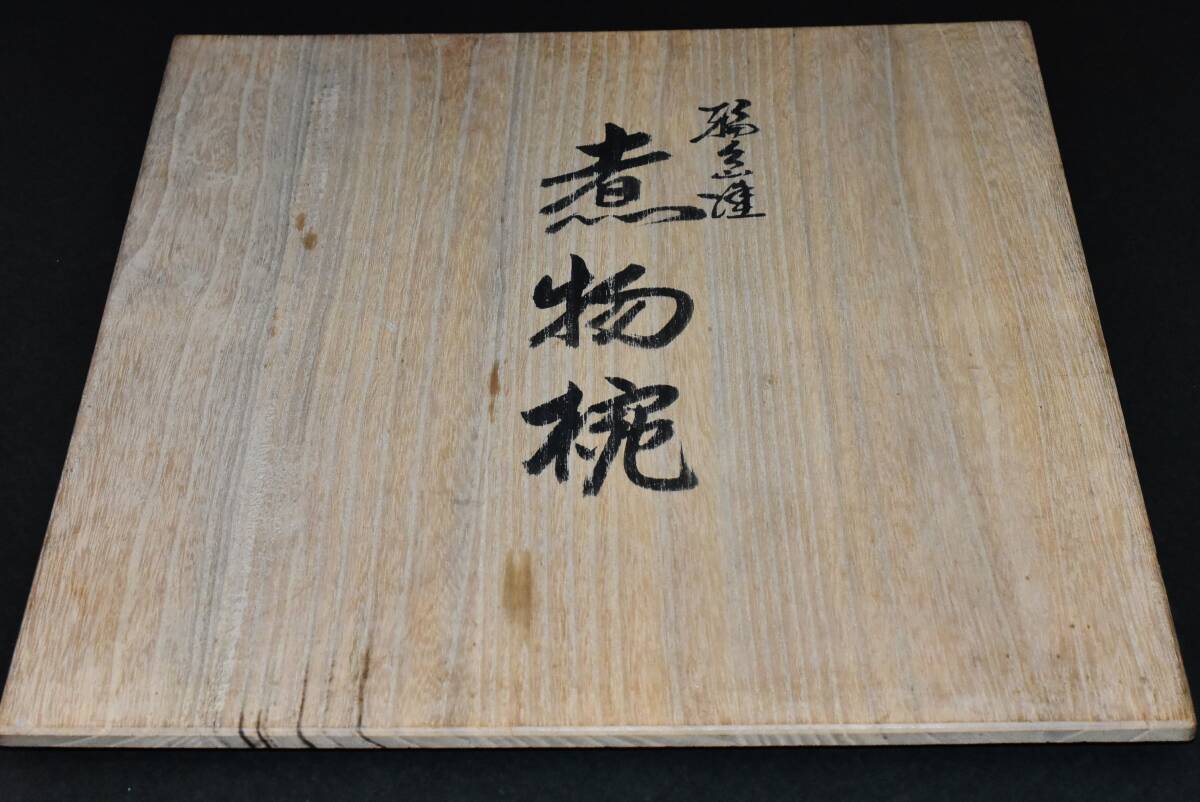 輪島塗
煮物椀